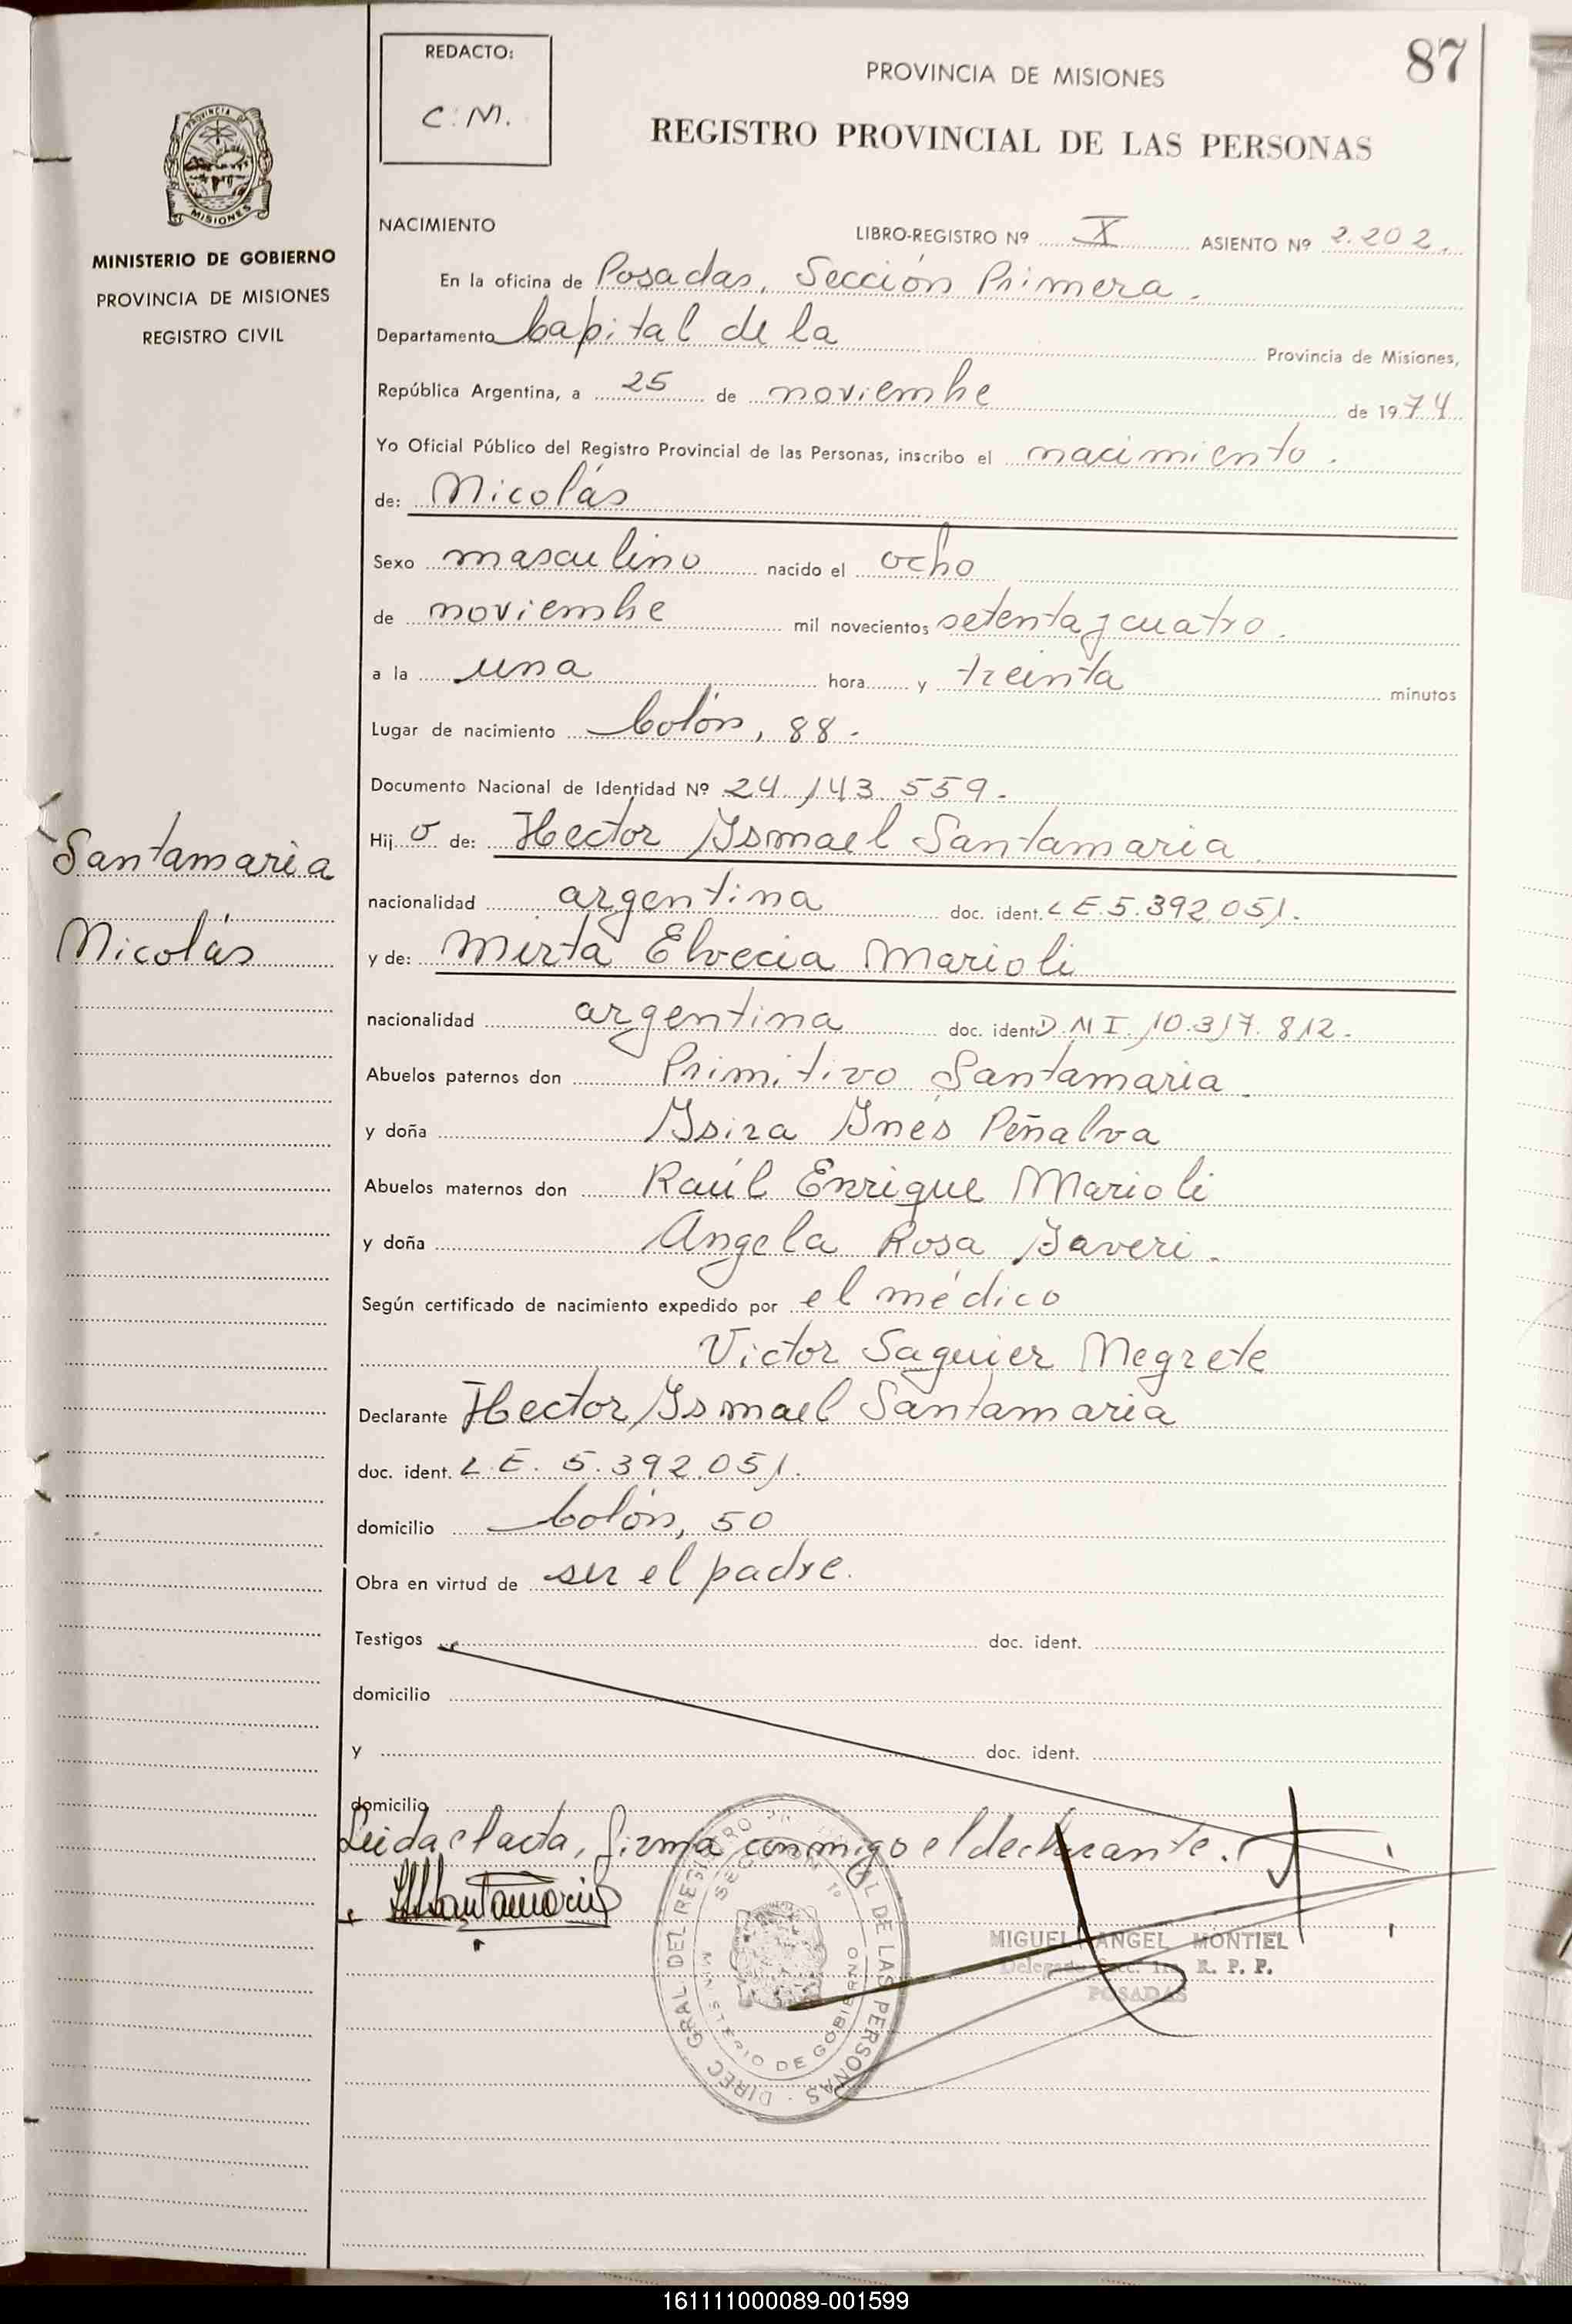 REDACTO:
C.M.
PROVINCIA DE MISIONES
87
REGISTRO PROVINCIAL DE LAS PERSONAS
PROVINCIA DE
MISIONES
MINISTERIO DE GOBIERNO
PROVINCIA DE MISIONES
REGISTRO CIVIL
NACIMIENTO
LIBRO-REGISTRO Nº X ASIENTO Nº 2.202.
En la oficina de Posadas, Sección Primera.
Departamento Capital de la Provincia de Misiones,
República Argentina, a 25 de noviembre de 1974
Yo Oficial Público del Registro Provincial de las Personas, inscribo el nacimiento.
de: Nicolás
Sexo masculino nacido el ocho
de noviembre mil novecientos setenta y cuatro.
a la una hora y treinta minutos
Lugar de nacimiento Colón, 88.
Documento Nacional de Identidad Nº 24.143.559.
Santamaria
Nicolás
Hijo de: Hector Ismael Santamaria
nacionalidad argentina doc. ident. LE.5.392.051.
y de: Mirta Elvecia Marioli
nacionalidad argentina doc. ident D.N I. 10.317.812.
Abuelos paternos don Primitivo Santamaria
y doña Isira Inés Peñalva
Abuelos maternos don Raúl Enrique Marioli
y doña Angela Rosa Saveri.
Según certificado de nacimiento expedido por el médico
Victor Saguier Negrete
Declarante Hector Ismael Santamaria
doc. ident. L.E. 5.392.051.
domicilio Colón, 50
Obra en virtud de ser el padre.
Testigos doc. ident.
domicilio
y doc. ident.
domicilio
Leida el acta, firma conmigo el declarante.
HISantamaria
DIREC. GRAL DEL REGISTRO DE LAS PERSONAS
MINISTERIO DE GOBIERNO
MIGUEL ANGEL MONTIEL
Delegado Sec. 1ra. R. P. P.
POSADAS
161111000089-001599